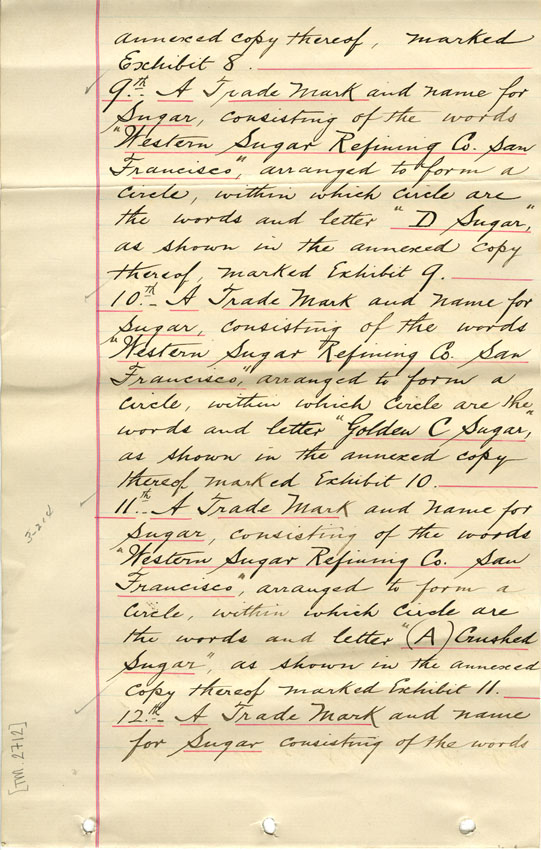 annexed copy thereof, marked
Exhibit 8.
9th.- A Trade Mark and name for
Sugar, consisting of the words
"Western Sugar Refining Co. San
Francisco", arranged to form a
circle, within which circle are
the words and letter "D Sugar,"
as shown in the annexed copy
thereof, marked Exhibit 9.
10th.- A Trade Mark and name for
Sugar, consisting of the words
"Western Sugar Refining Co. San
Francisco," arranged to form a
circle, within which circle are the
words and letter "Golden C Sugar,"
as shown in the annexed copy
thereof marked Exhibit 10.
11th.- A Trade Mark and name for
Sugar, consisting of the words
"Western Sugar Refining Co. San
Francisco", arranged to form a
circle, within which circle are
the words and letter "(A) Crushed
Sugar", as shown in the annexed
copy thereof marked Exhibit 11.
12th.- A Trade Mark and name
for Sugar consisting of the words
3-214
[TM. 2712]